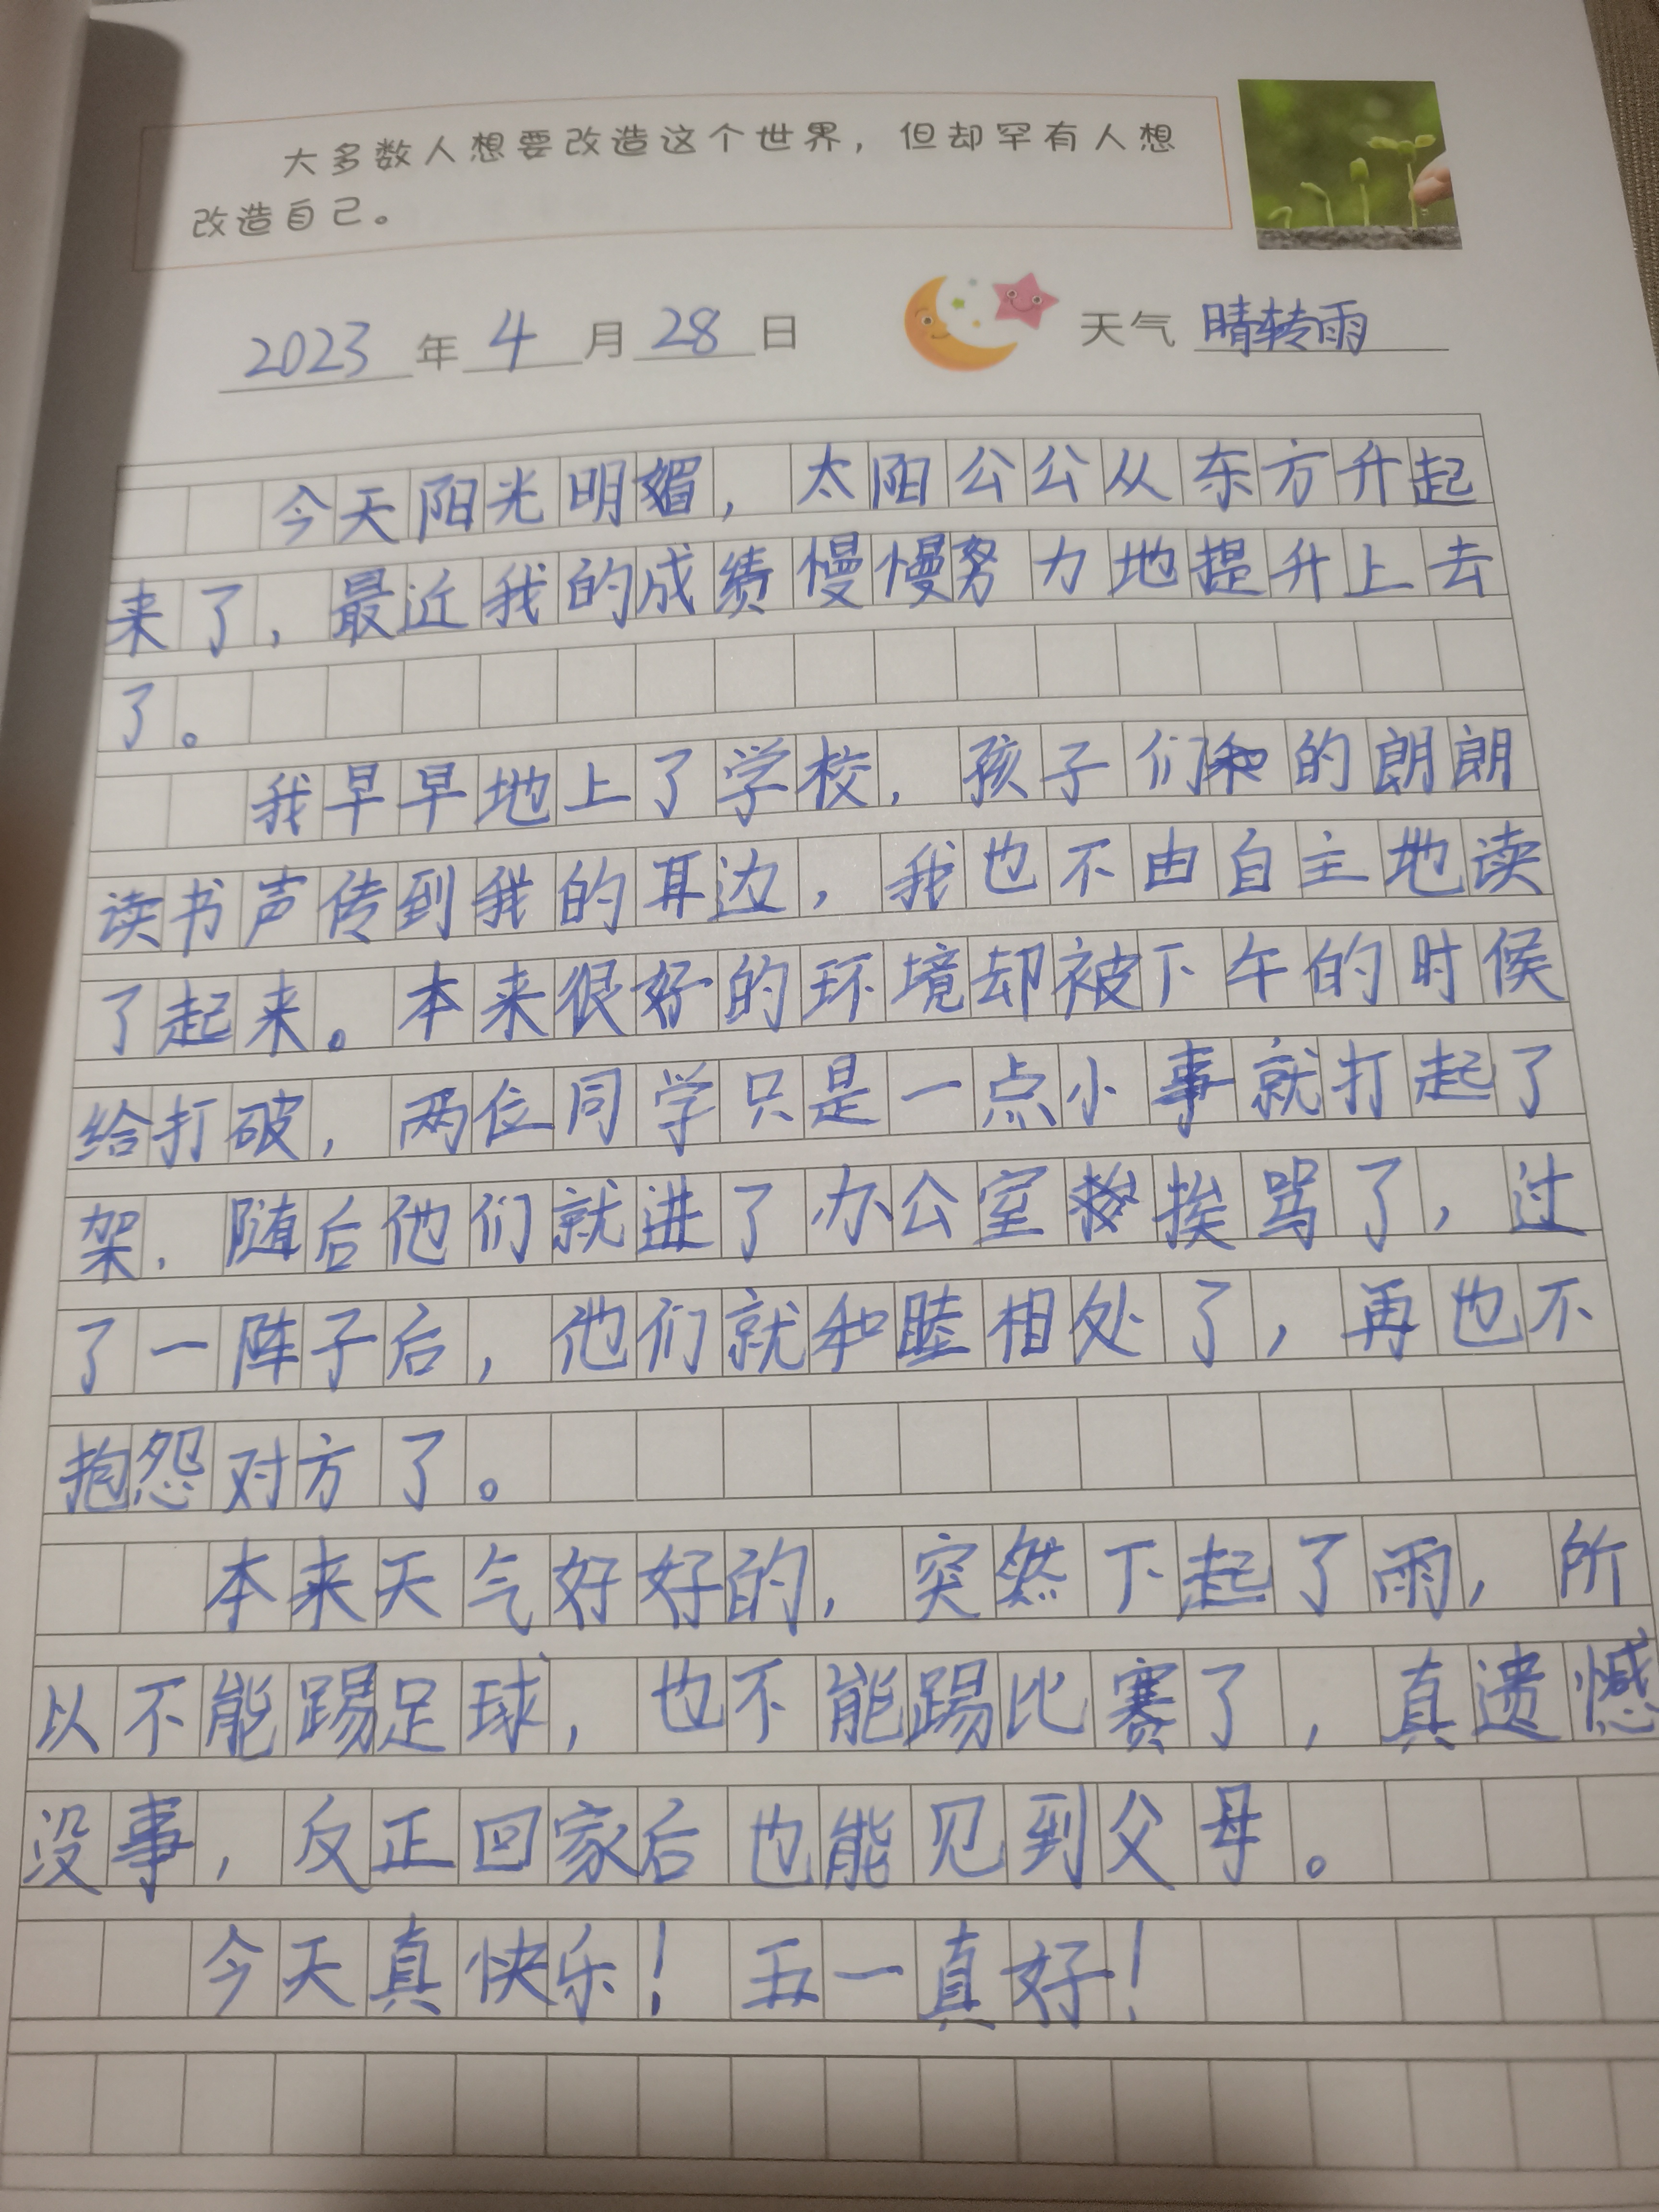 大多数人想要改造这个世界，但却罕有人想
改造自己。
2023年4月28日 天气 晴转雨
今天阳光明媚，太阳公公从东方升起
来了，最近我的成绩慢慢努力地提升上去
了。
我早早地上了学校，孩子们和的朗朗
读书声传到我的耳边，我也不由自主地读
了起来。本来很好的环境却被下午的时候
给打破，两位同学只是一点小事就打起了
架，随后他们就进了办公室挨骂了，过
了一阵子后，他们就和睦相处了，再也不
抱怨对方了。
本来天气好好的，突然下起了雨，所
以不能踢足球，也不能踢比赛了，真遗憾
没事，反正回家后也能见到父母。
今天真快乐！五一真好！